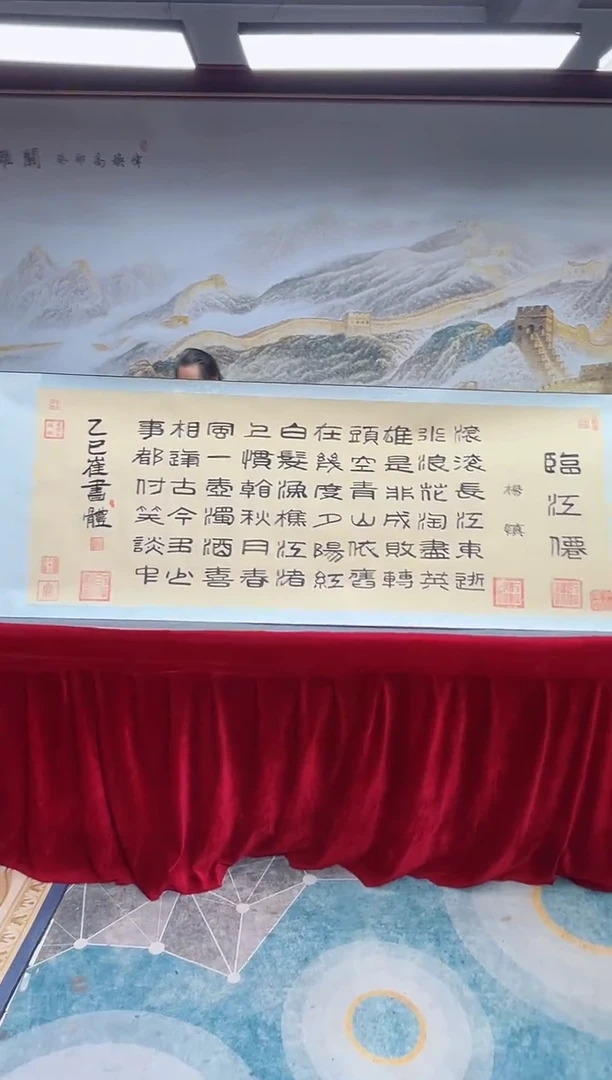 雄關
臨江僊
楊慎
滾滾長江東逝
水浪花淘盡英
雄是非成敗轉
頭空青山依舊
在幾度夕陽紅
白髮漁樵江渚
上慣看秋月春
風一壺濁酒喜
相逢古今多少
事都付笑談中
乙巳崔書體